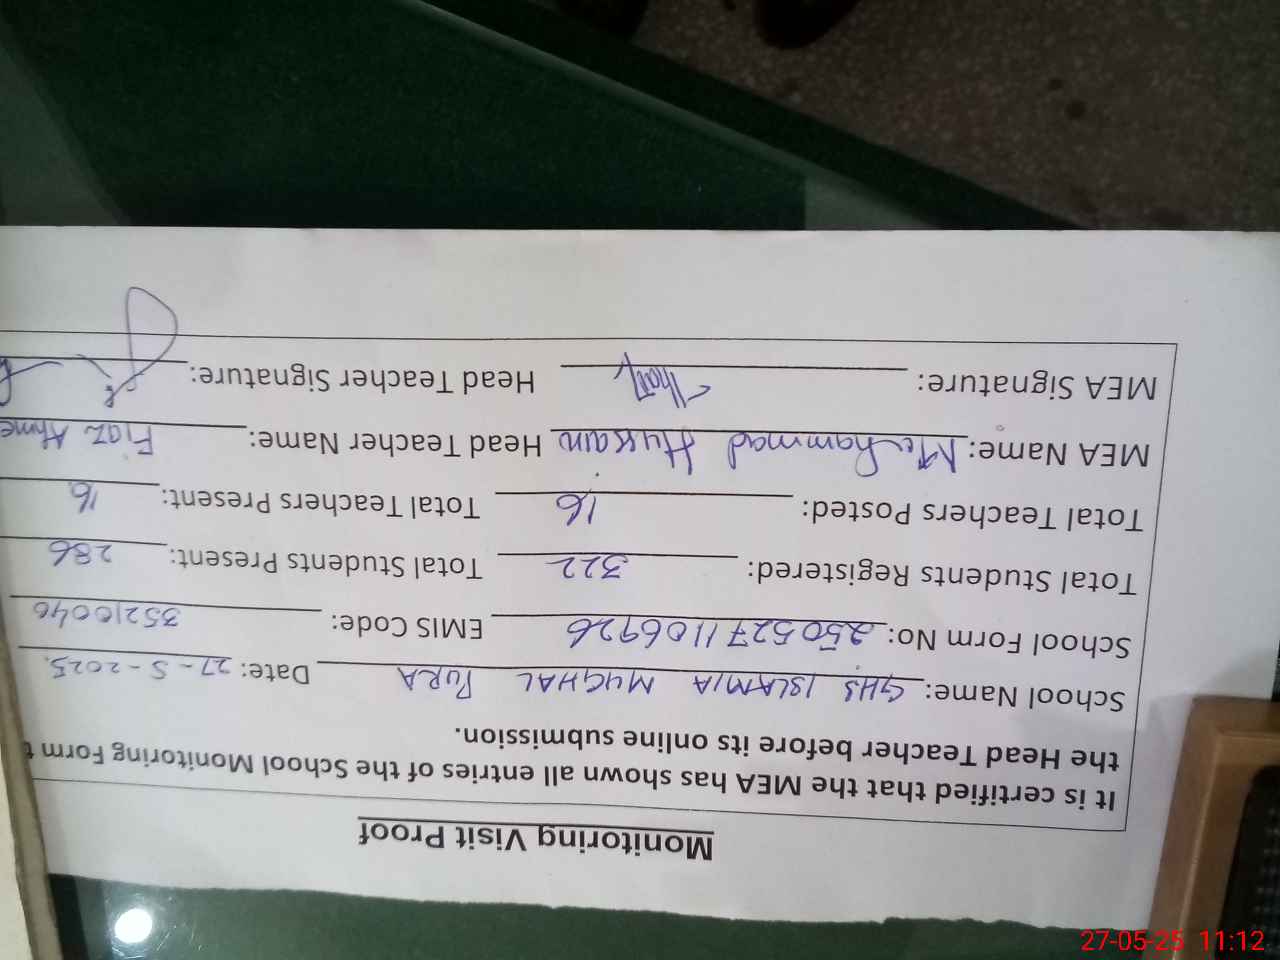 Monitoring Visit Proof
It is certified that the MEA has shown all entries of the School Monitoring Form t
the Head Teacher before its online submission.
School Name: GHS ISLAMIA MUGHAL PURA Date: 27-5-2025.
School Form No: 2505271106926 EMIS Code: 35210040
Total Students Registered: 322 Total Students Present: 286
Total Teachers Posted: 16 Total Teachers Present: 16
MEA Name: Muhammad Hussain Head Teacher Name: Fiaz Ahme
MEA Signature: Head Teacher Signature:
27-05-25 11:12